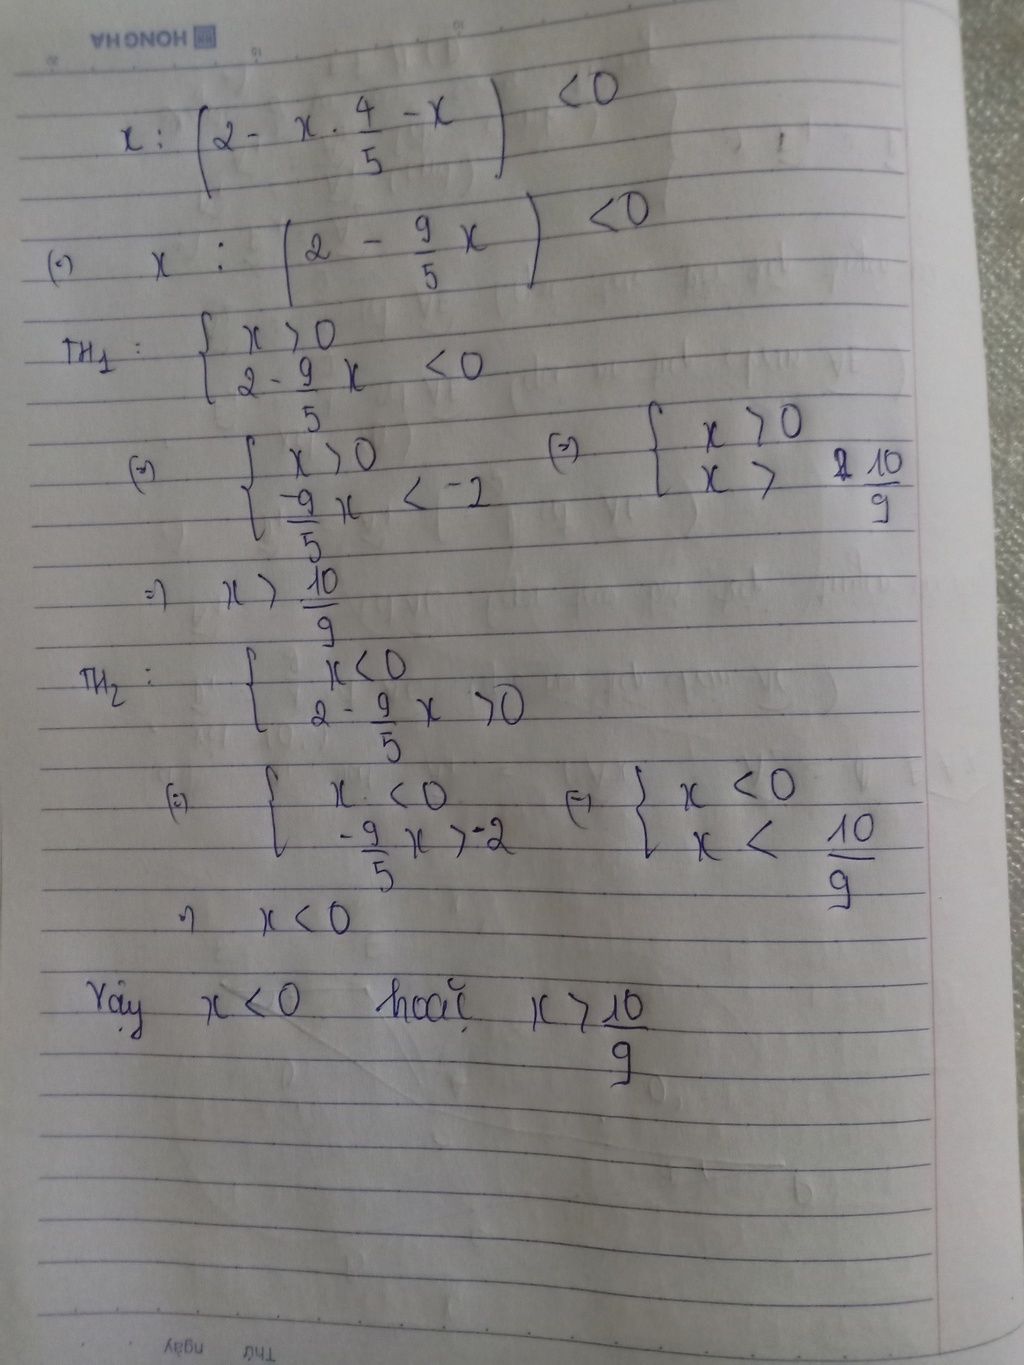 HONG HA
x : (2 - x . 4/5 - x) < 0
(=) x : (2 - 9/5 x) < 0
TH1 : { x > 0
2 - 9/5 x < 0
(=) { x > 0 (=) { x > 0
-9/5 x < -2 x > 10/9
=) x > 10/9
TH2 : { x < 0
2 - 9/5 x > 0
(=) { x < 0 (=) { x < 0
-9/5 x > -2 x < 10/9
=) x < 0
Vậy x < 0 hoặc x > 10/9
Thứ ngày